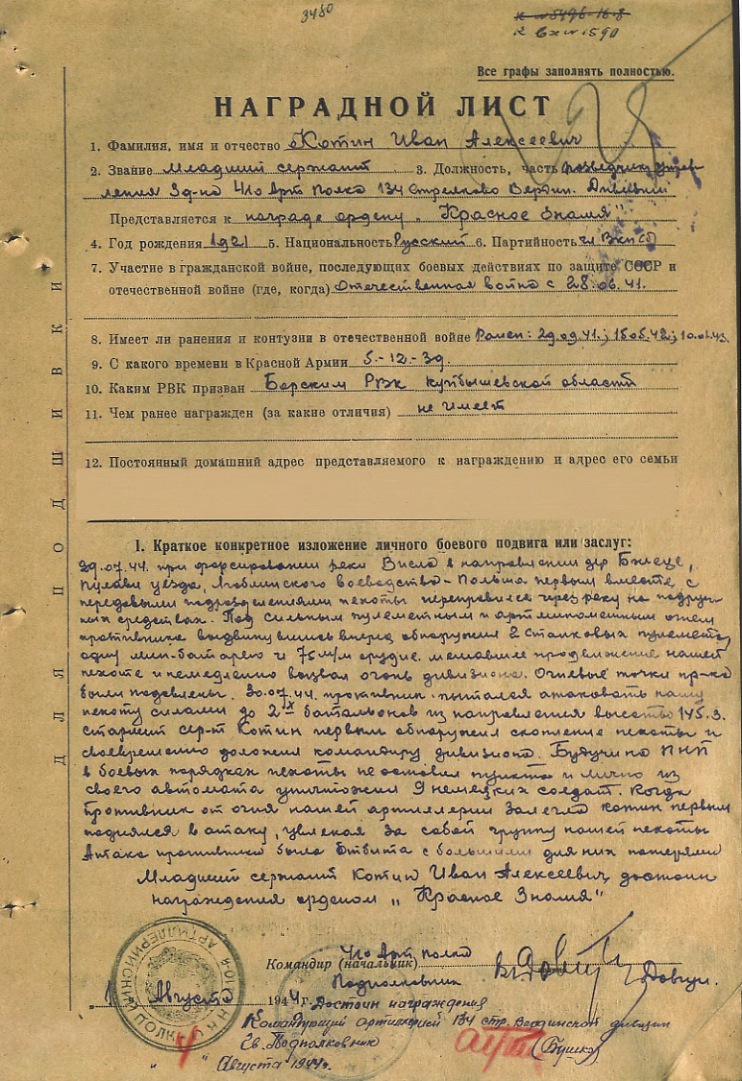 3480
к вх № 1590
Все графы заполнять полностью.
НАГРАДНОЙ ЛИСТ
1. Фамилия, имя и отчество Котин Иван Алексеевич
2. Звание Младший сержант 3. Должность, часть разведчик управ-
ления 3д-на 410 Арт Полка 134 Стрелково Вердин. Дивизии
Представляется к награде ордену „Красное Знамя"
4. Год рождения 1921 5. Национальность Русский 6. Партийность чл ВКП(б)
7. Участие в гражданской войне, последующих боевых действиях по защите СССР и
отечественной войне (где, когда) Отечественная война с 28.06.41.
8. Имеет ли ранения и контузии в отечественной войне Ранен: 29.09.41.; 15.05.42; 10.01.43.
9. С какого времени в Красной Армии 5.-12-39.
10. Каким РВК призван Борским РВК Куйбышевской области
11. Чем ранее награжден (за какие отличия) не имеет
12. Постоянный домашний адрес представляемого к награждению и адрес его семьи
ДЛЯ ПОДШИВКИ
I. Краткое конкретное изложение личного боевого подвига или заслуг:
29.07.44. при форсировании реки Висла в направлении дер
Пулавы уезда, Люблинского воеводства - Польша первым вместе с
передовыми подразделениями пехоты переправился через реку на подруч-
ных средствах. Под сильным пулеметным и артминометным огнем
противника выдвинувшись вперед обнаружил 2 станковых пулемета,
одну мин-батарею и 75 м/м орудие, мешавшие продвижение нашей
пехоте и немедленно вызвал огонь дивизиона. Огневые точки пр-ка
были подавлены. 30.07.44. противник пытался атаковать нашу
пехоту силами до 2х батальонов из направления высоты 145.3.
Старший сер-т Котин первым обнаружил скопление пехоты и
своевременно доложил командиру дивизиона. Будучи на ПНП
в боевых порядках пехоты не оставил пункта и лично из
своего автомата уничтожил 9 немецких солдат. Когда
противник от огня нашей артиллерии залег Котин первым
поднялся в атаку, увлекая за собой группу нашей пехоты
Атака противника была отбита с большими для них потерями
Младший сержант Котин Иван Алексеевич достоин
награждения орденом „Красное Знамя"
410 Арт полка
Командир (начальник)
Подполковник
Августа 1944 г.
Достоин награждения
Командующий артиллерией 134 стр. Вердинской дивизии
Гв. Подполковник (Бушко)
" " Августа 1944г.